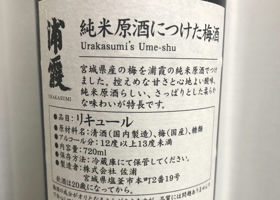 浦霞
URAKASUMI
純米原酒につけた梅酒
Urakasumi's Ume-shu
宮城県産の梅を浦霞の純米原酒でつけ
ました。控えめな甘さと心地よい酸味、
純米原酒らしい、さっぱりとした柔らか
な味わいが特長です。
●品目:リキュール
●原材料名:清酒(国内製造)、梅(国産)、糖類
●アルコール分:12度以上13度未満
●内容量:720ml
●保存方法:冷蔵庫にて保管してください。
●製造者:株式会社 佐浦
宮城県塩釜市本町2番19号
お酒は20歳になってから。